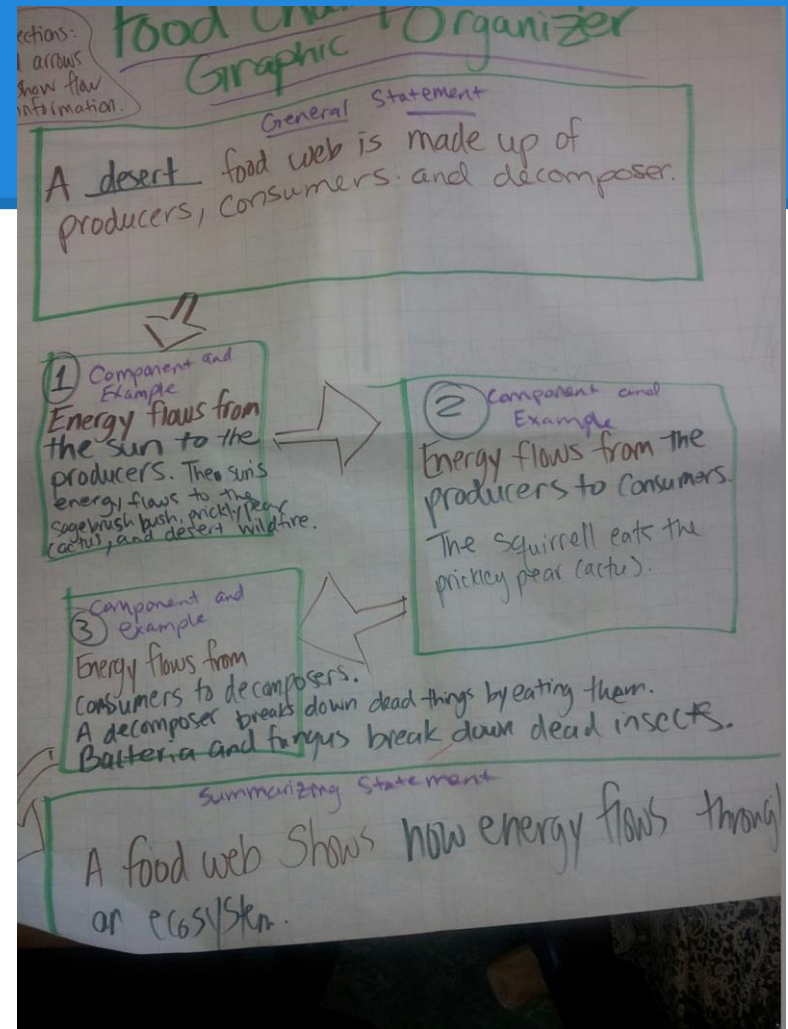 ections:
arrows
show flow
information.
Food Chain Organizer
Graphic
General Statement
A desert food web is made up of
producers, consumers. and decomposer.
1 Component and
Example
Energy flows from
the sun to the
producers. The sun's
energy flows to the
sagebrush bush, prickly pear
cactus, and desert wildfire.
2 Component and
Example
Energy flows from the
producers to consumers.
The squirrell eats the
prickley pear cactus.
3 Component and
example
Energy flows from
consumers to decomposers.
A decomposer breaks down dead things by eating them.
Bacteria and fungus break down dead insects.
Summarizing Statement
A food web Shows how energy flows throug
an ecosystem.